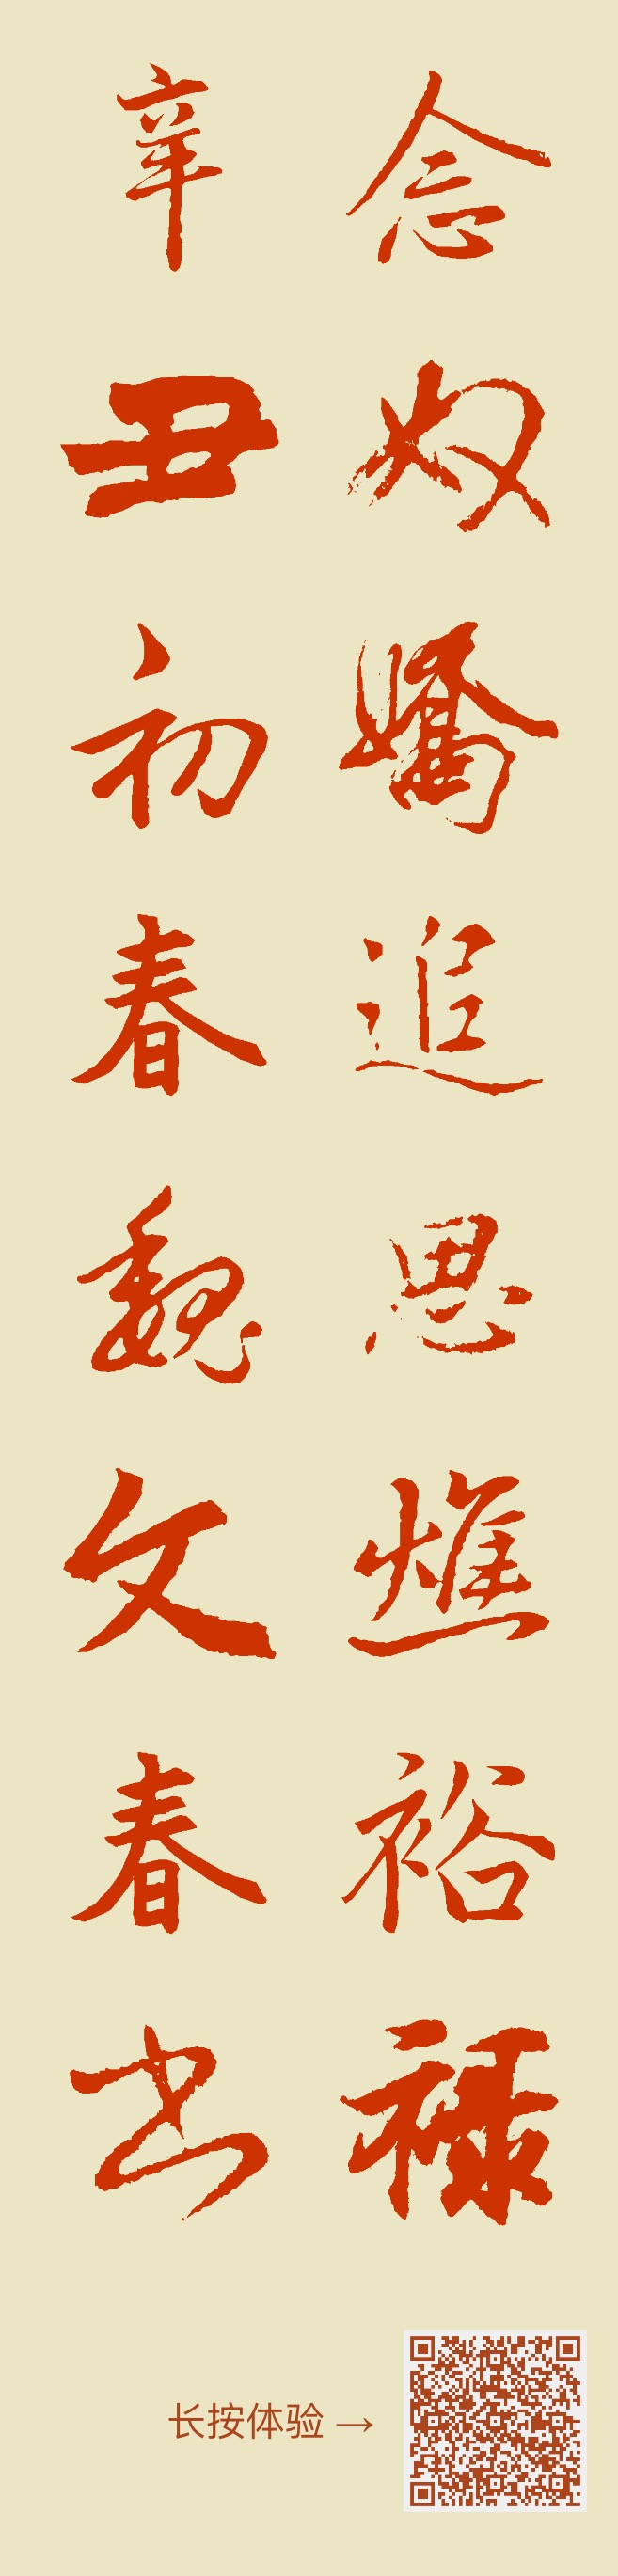 念奴嬌追思燋裕禄
辛丑初春魏文春书
长按体验→